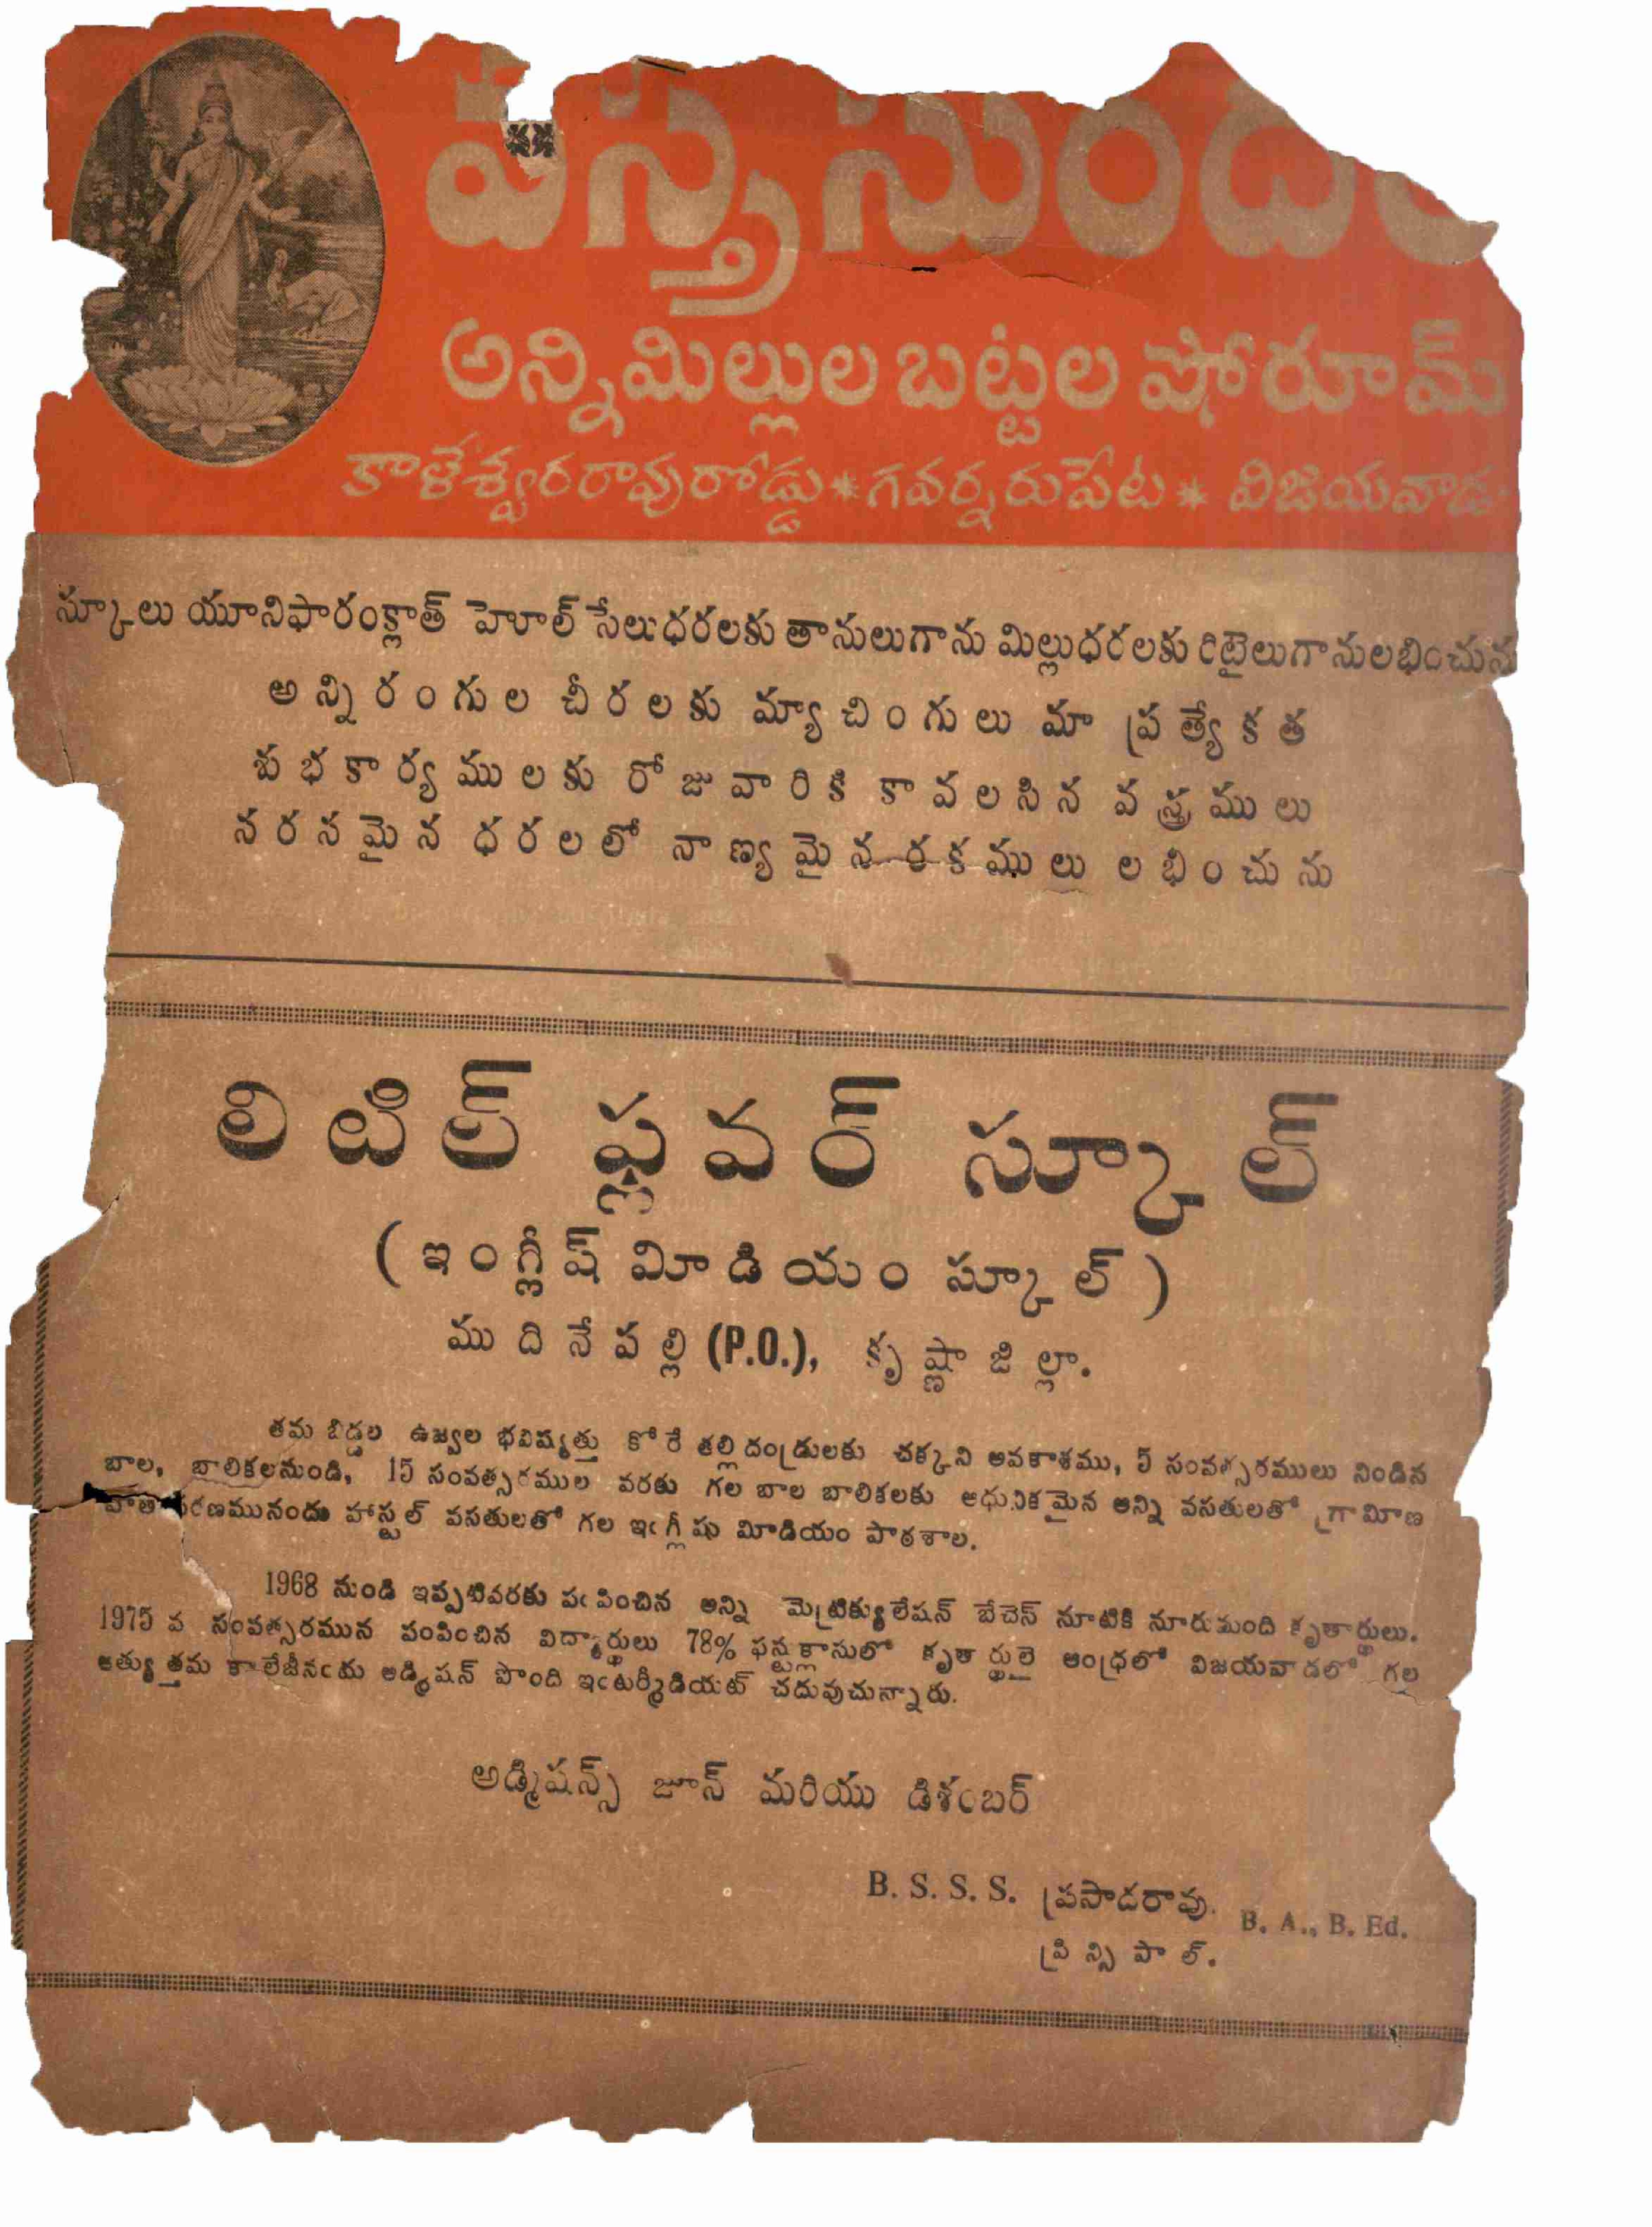 వస్త్ర సుంద
అన్నిమిల్లుల బట్టల షోరూమ్
కాళేశ్వరరావురోడ్డు * గవర్నరుపేట * విజయవాడ
స్కూలు యూనిఫారంక్లాత్ హెూల్ సేలుధరలకు తానులుగాను మిల్లుధరలకు రిటైలుగానులభించును
అన్నిరంగుల చీరలకు మ్యాచింగులు మా ప్రత్యేకత
శుభకార్యములకు రోజువారికి కావలసిన వస్త్రములు
సరసమైన ధరలలో నాణ్యమైన రకములు లభించును
లిటిల్ ఫ్లవర్ స్కూల్
(ఇంగ్లీష్ మీడియం స్కూల్)
ముదినేపల్లి (P.O.), కృష్ణా జిల్లా.
తమ బిడ్డల ఉజ్వల భవిష్యత్తు కోరే తల్లిదండ్రులకు చక్కని అవకాశము, 5 సంవత్సరములు నిండిన
బాల, బాలికలనుండి, 15 సంవత్సరముల వరకు గల బాల బాలికలకు ఆధునికమైన అన్ని వసతులతో గ్రామీణ
వాతావరణమునందు హాస్టల్ వసతులతో గల ఇంగ్లీషు మీడియం పాఠశాల.
1968 నుండి ఇప్పటివరకు పంపించిన అన్ని మెట్రిక్యులేషన్ బేచెస్ నూటికి నూరుమంది కృతార్థులు.
1975 వ సంవత్సరమున పంపించిన విద్యార్థులు 78% ఫస్టుక్లాసులో కృతార్థులై ఆంధ్రలో విజయవాడలో గల
అత్యుత్తమ కాలేజీనందు అడ్మిషన్ పొంది ఇంటర్మీడియట్ చదువుచున్నారు.
అడ్మిషన్స్ జూన్ మరియు డిశంబర్
B. S. S. S. ప్రసాదరావు. B. A., B. Ed.
ప్రిన్సిపాల్.